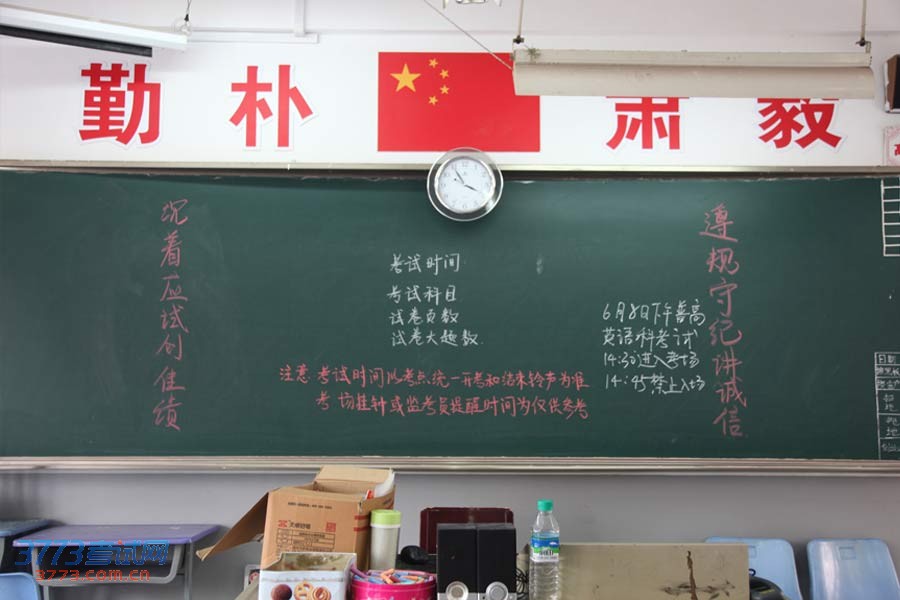 勤 朴 肃 毅
沉着应试创佳绩
考试时间
考试科目
试卷页数
试卷大题数
注意:考试时间以考点统一开考和结束铃声为准
考场挂钟或监考员提醒时间为仅供参考
6月8日下午普高
英语科考试
14:30进入考场
14:45禁止入场
遵规守纪讲诚信
日期
3773考试网
3773.com.cn